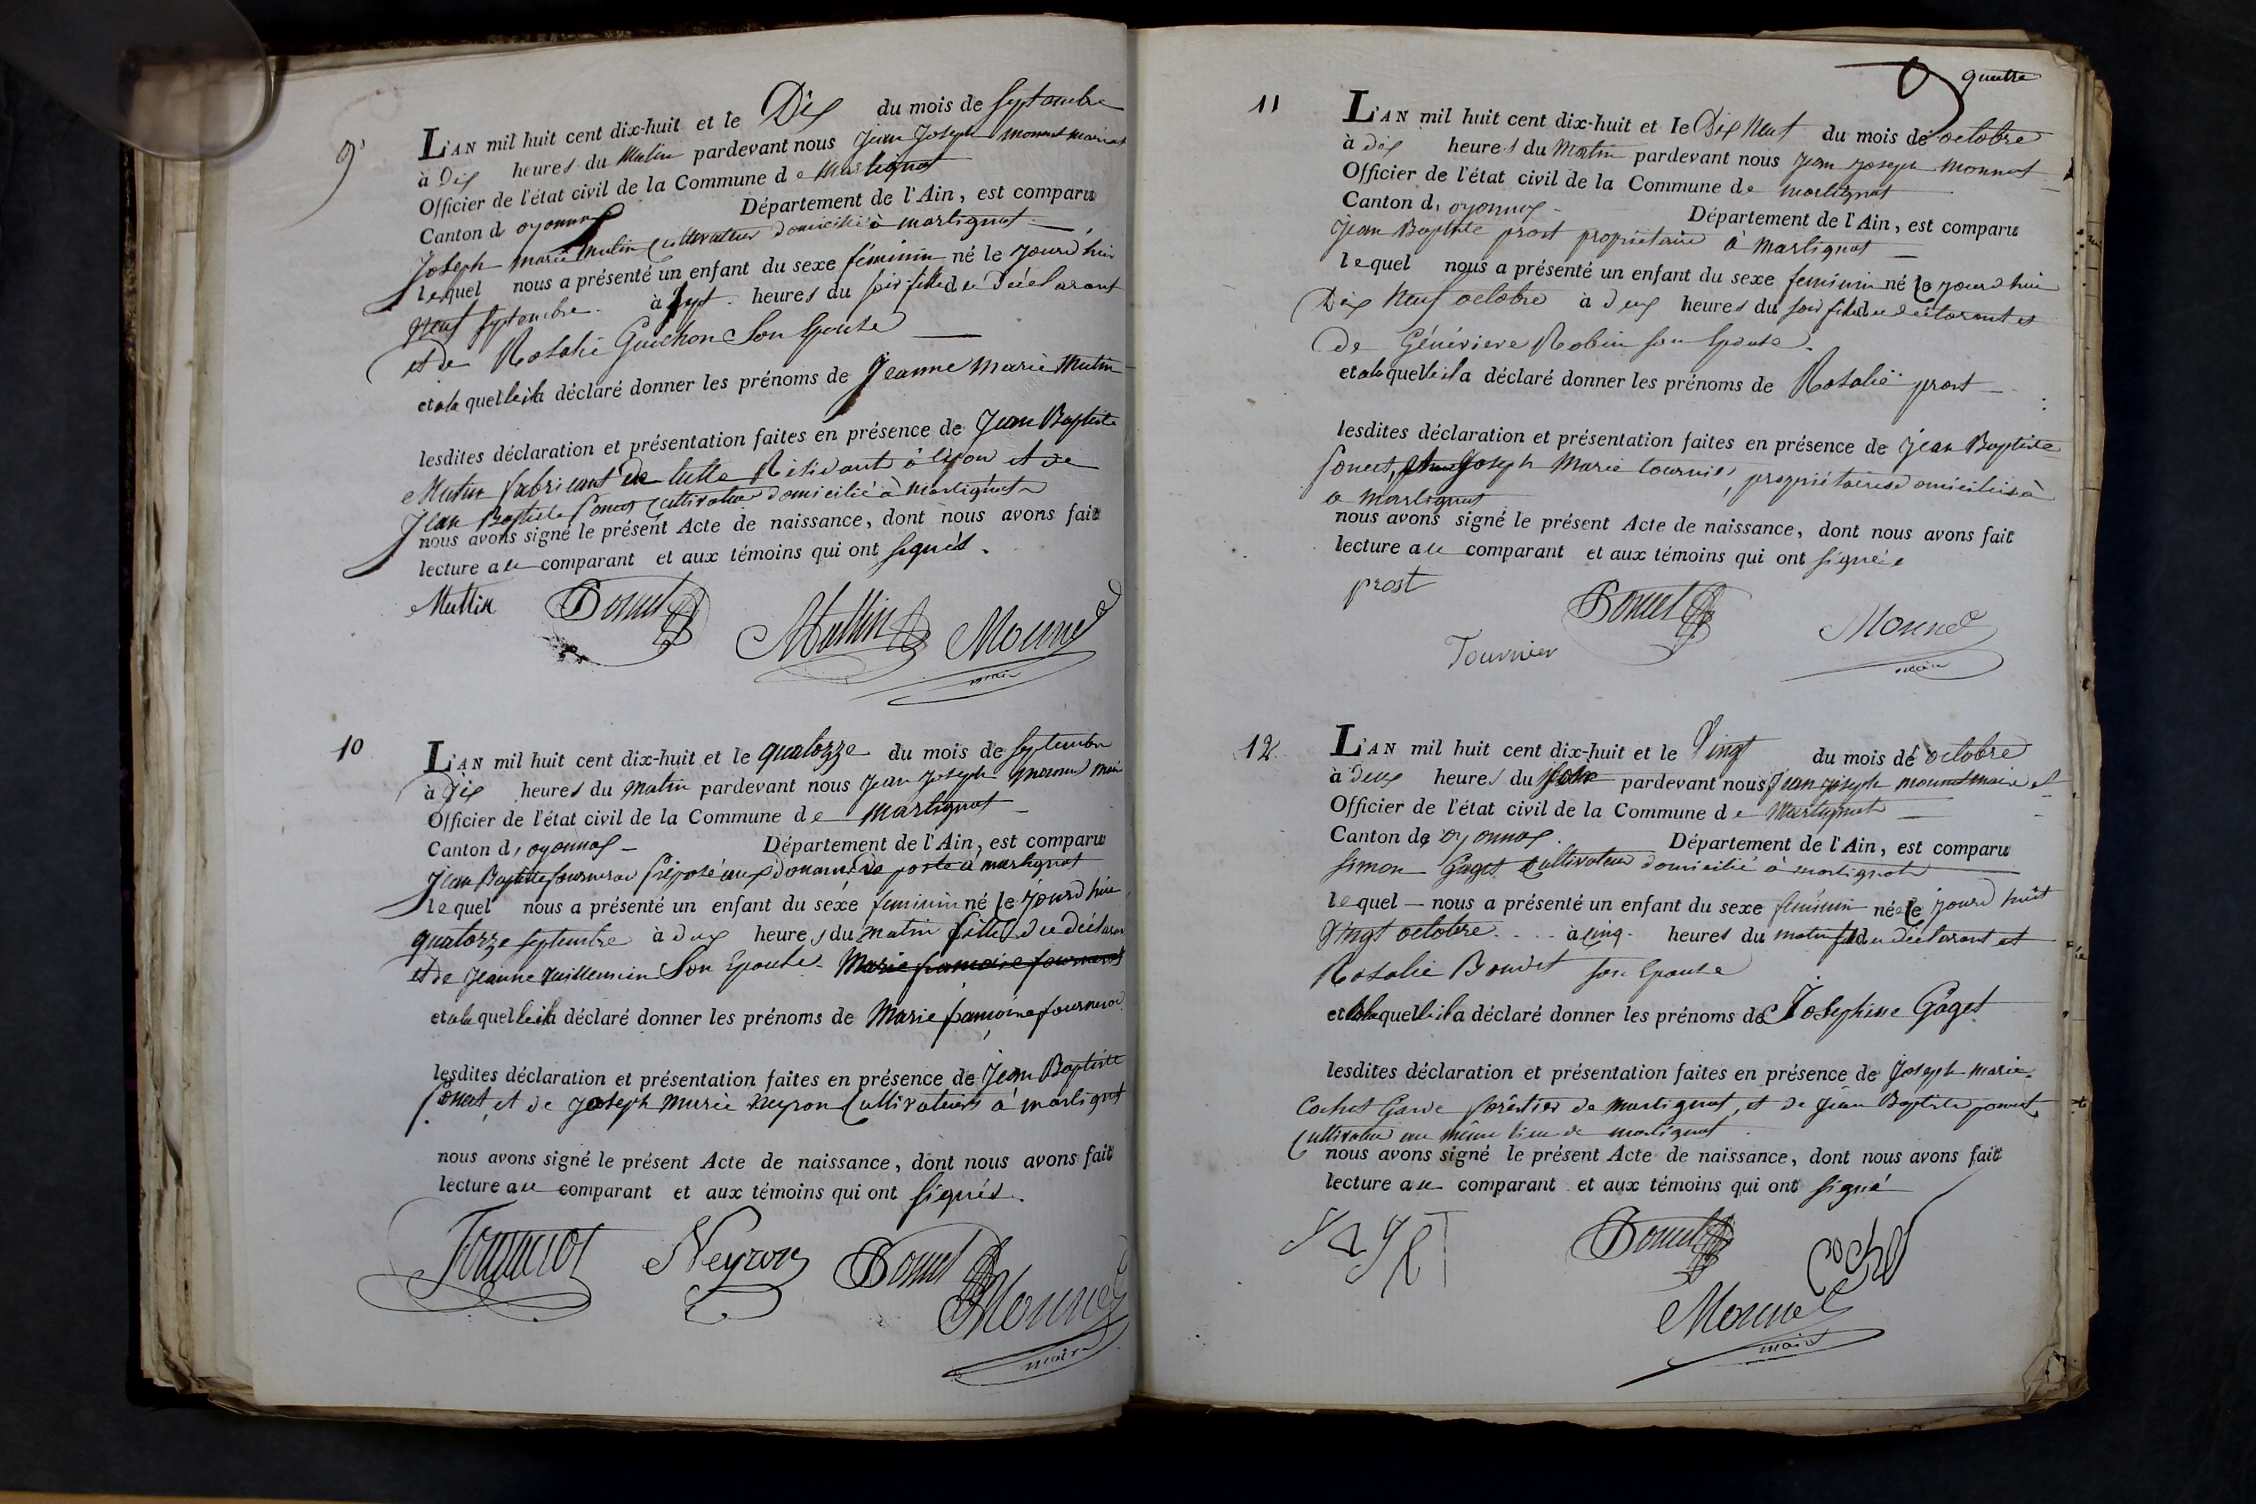 9
L'AN mil huit cent dix-huit et le Dix du mois de Septembre
à Dix heures du Matin pardevant nous Jean Joseph monnet maire et
Officier de l'état civil de la Commune de Martignat
Canton d oyonnax Département de l'Ain, est comparu
Joseph marie Mutin Cultivateur domicilié à martignat
lequel nous a présenté un enfant du sexe féminin né le jourd'hui
neuf Septembre à Sept heures du soir fille du déclarant
et de Rosalie Guichon Son Epouse
et a laquelle il a déclaré donner les prénoms de Jeanne Marie Mutin
lesdites déclaration et présentation faites en présence de Jean Baptiste
Mutin fabricant de tulle Résidant à Lyon et de
Jean Baptiste Sonet Cultivateur domicilié à Martignat
nous avons signé le présent Acte de naissance, dont nous avons fait
lecture au comparant et aux témoins qui ont signés.
Muttin Sonnet Muttin Monnet
maire
10
L'AN mil huit cent dix-huit et le quatorze du mois de Septembre
à Dix heures du Matin pardevant nous Jean Joseph monnet maire
Officier de l'état civil de la Commune de Martignat
Canton d, oyonnax Département de l'Ain, est comparu
Jean Baptiste fournerot Préposé aux douanes de poste à martignat
lequel nous a présenté un enfant du sexe feminin né le jourd'hui
quatorze septembre à deux heures du matin fille du déclarant
et de Jeanne Vuillermin Son Epouse Marie françoise fournerot
et a laquelle il a déclaré donner les prénoms de Marie françoise fournerot
lesdites déclaration et présentation faites en présence de Jean Baptiste
Sonet, et de Joseph Marie Neyron Cultivateurs à martignat
nous avons signé le présent Acte de naissance, dont nous avons fait
lecture au comparant et aux témoins qui ont signés.
Fournerot Neyron Sonnet Monnet
maire
quatre
11
L'AN mil huit cent dix-huit et le Dix Neuf du mois de octobre
à dix heures du Matin pardevant nous Jean Joseph Monnet
Officier de l'état civil de la Commune de martignat
Canton d, oyonnax Département de l'Ain, est comparu
Jean Baptiste prost propriétaire à Martignat
lequel nous a présenté un enfant du sexe feminin né le jourd'hui
Dix Neuf octobre à deux heures du soir fille du déclarant et
de Généviève Robin son Epouse
et a laquelle il a déclaré donner les prénoms de Rosalie prost
lesdites déclaration et présentation faites en présence de Jean Baptiste
Sonet, Joseph Marie tournié, propriétaires domiciliés à
a Martignat
nous avons signé le présent Acte de naissance, dont nous avons fait
lecture au comparant et aux témoins qui ont signés
prost Sonnet Monnet
Tournier maire
12
L'AN mil huit cent dix-huit et le Vingt du mois de octobre
à deux heures du soir pardevant nous Jean Joseph monnet maire et
Officier de l'état civil de la Commune de Martignat
Canton de oyonnax Département de l'Ain, est comparu
Simon Gaget Cultivateur domicilié à martignat
lequel nous a présenté un enfant du sexe feminin née le jourd'huit
Vingt octobre à cinq heures du matin fille du déclarant et
Rosalie Bondet son Epouse
et a laquelle il a déclaré donner les prénoms de Josephine Gaget
lesdites déclaration et présentation faites en présence de Joseph Marie
Cochet Garde forêstier de martignat, et de Jean Baptiste sonnet
Cultivateur au même lieu de martignat
nous avons signé le présent Acte de naissance, dont nous avons fait
lecture au comparant et aux témoins qui ont signé
Gaget Sonnet Cochet
Monnet
maire